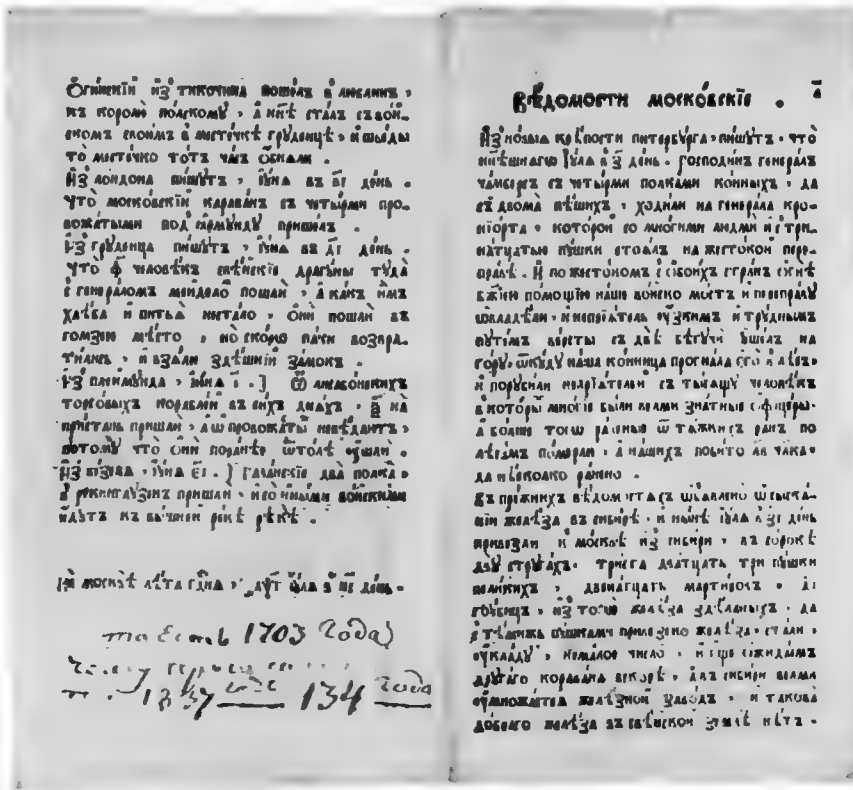 Огинскїй из тикочина пошелъ в люблинъ,
къ королю полскому, а ннѣ сталъ съ вои-
скомъ своимъ в местечкѣ груденцѣ, и шведы
то местечко тотъ часъ обняли.
Из лондона пишутъ, їуня въ день.
что московскїй караванъ съ четырми про-
вожатыми под ярмуиду пришелъ.
Из груденца пишутъ, їуня въ дї день.
что ф человѣкъ свѣискїе драгуны туда
с генераломъ пошли, а какъ имъ
хлѣба и питья нестало, они пошли въ
мѣсто, но скорѡ паки возвра-
тились, и взяли здѣшнїй замокъ.
Из їуня ѿ лисабонскихъ
торговыхъ кораблей въ сихъ дняхъ, на
пристань пришли, а ѡ провожаты невѣдаютъ,
потому что они поранѣе ѿтолѣ ушли.
Из їуня єї. галанскїе два полка,
в пришли, и со иными воискими
идутъ къ рекѣ.
На москвѣ лѣта гдня, аѱг їуля в день.
то есть 1703 года
1837 134 года
Вѣдомости московскїе.
Из новыя крѣпости питербурга, пишутъ, что
ннѣшнягѡ їуля в з день. господинъ генералъ
чамберсъ съ четырми полками конныхъ, да
съ двомя пѣшихъ, ходили на генерала кро-
нїорта, которой со многими людми и с три-
натцатью пушки стоялъ на жестокой пере-
правѣ. И по жестокомъ с обоихъ странъ огнѣ
бжїею помощїю наше воиско мостъ и переправу
ѡвладѣли, и непрїятель узкимъ и труднымъ
путемъ версты съ двѣ бѣгучи ушелъ на
гору, ѿкуду наша конница прогнала его в лѣсъ,
и порубили непрїятелей съ тысящу человѣкъ
в которы многїе были велми знатные офіцеры.
а болше тогѡ раненые ѿ тяжкихъ ранъ по
лѣсамъ померли, а нашихъ побито лв члка,
да нѣсколко ранено.
Въ прежнихъ вѣдомостяхъ ѡбъявлено ѡ сыска-
нїи желѣза въ сибирѣ, и нынѣ їуля в зї день
привезли к москвѣ из сибири, въ сорокѣ
дву стругахъ. триста дватцать три пушки
великихъ, двенатцать мартировъ, дї
гоубицъ, из тогѡ желѣза здѣланыхъ, да
с тѣмижъ пушками привезено желѣза, стали,
укладу, немалое число, и еще ожидаемъ
другаго каравана вскорѣ, а въ сибири велми
умножается желѣзной заводъ, и такова
доброго желѣза въ свѣиской землѣ нѣтъ.